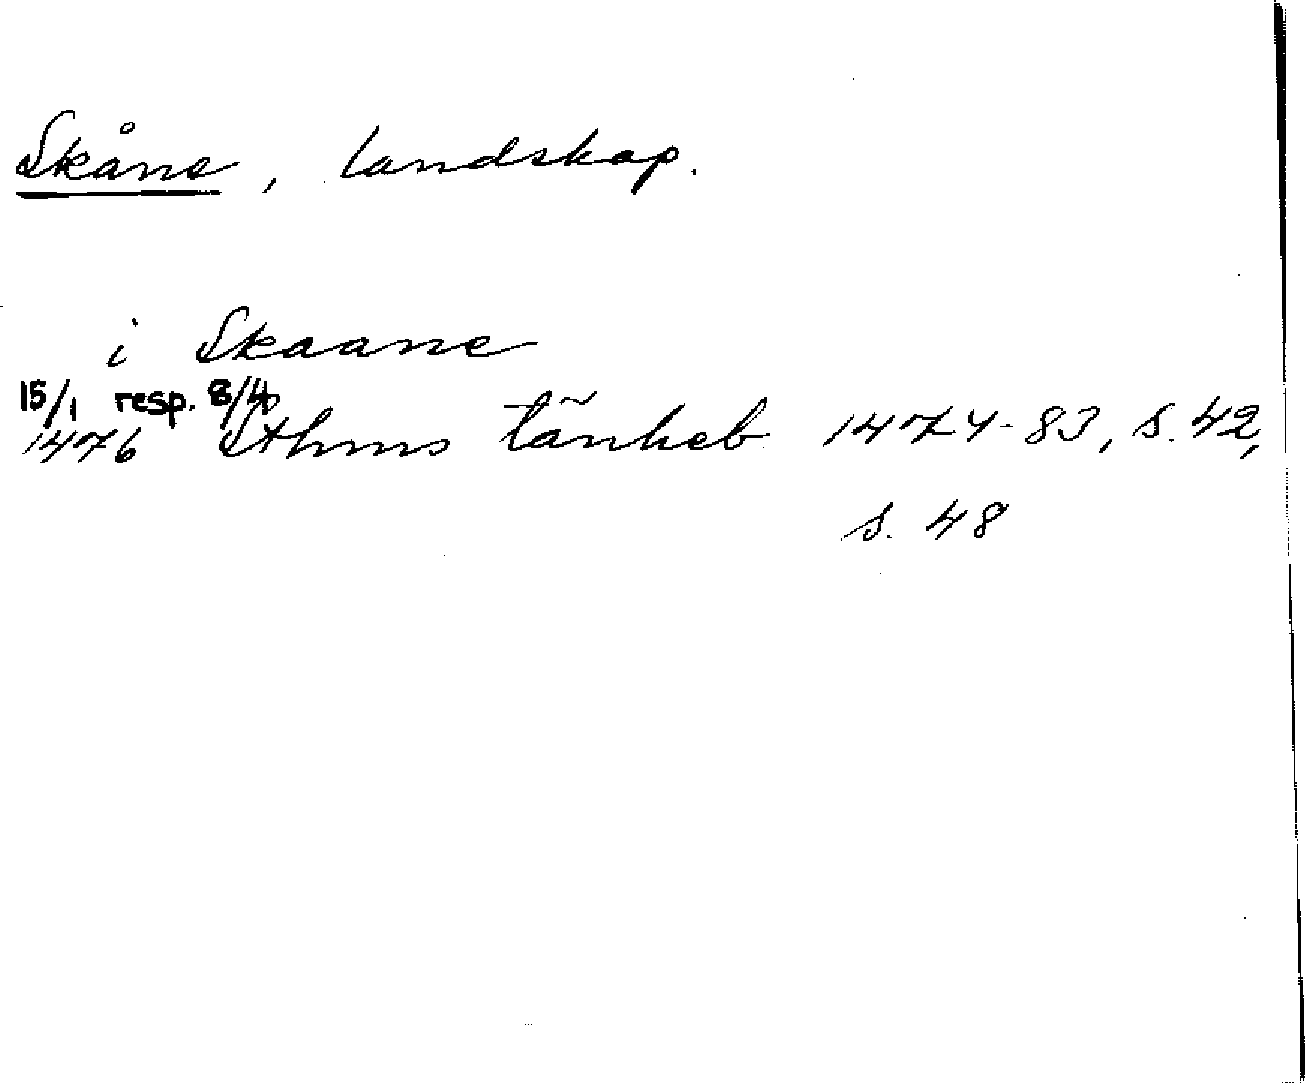 Skåne, landskap.
i Skaane
15/1 resp. 8/4
1476 Sthms tänkeb 1474-83, s. 42,
s. 48